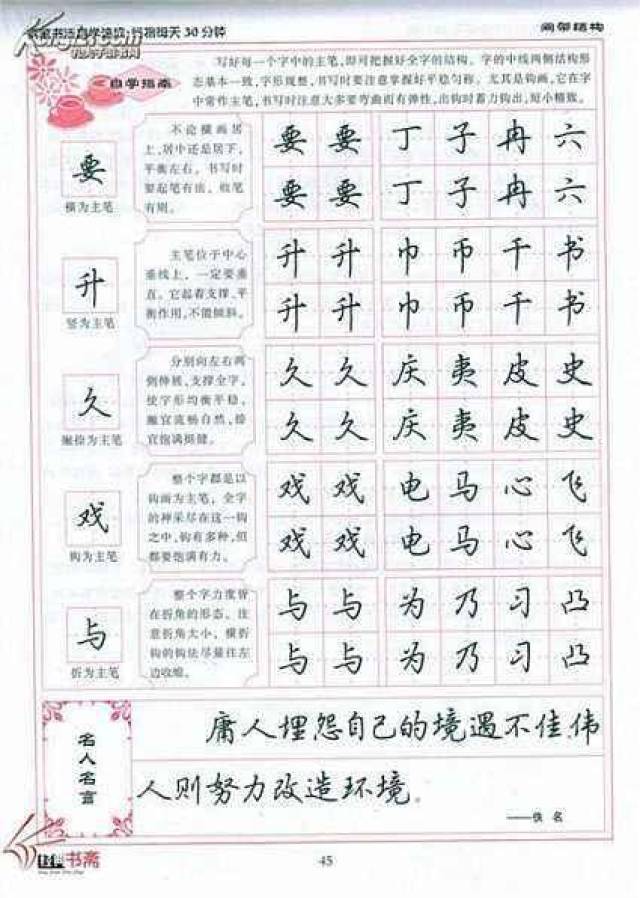 每天30分钟
间架结构
自学指南
写好每一个字中的主笔,即可把握好全字的结构。字的中线两侧结构形
态基本一致,字形规整,书写时要注意掌握好平稳匀称。尤其是钩画,它在字
中常作主笔,书写时注意大多要弯曲而有弹性,出钩时蓄力钩出,短小精致。
要
横为主笔
不论横画居
上,居中还是居下,
平衡左右。书写时
要起笔有法,收笔
有则。
要 要 丁 子 冉 六
要 要 丁 子 冉 六
升
竖为主笔
主笔位于中心
垂线上,一定要垂
直。它起着支撑、平
衡作用,不能倾斜。
升 升 巾 币 千 书
升 升 巾 币 千 书
久
撇捺为主笔
分别向左右两
侧伸展,支撑全字,
使字形均衡平稳。
撇宜流畅自然,捺
宜饱满挺健。
久 久 庆 夷 皮 史
久 久 庆 夷 皮 史
戏
钩为主笔
整个字都是以
钩画为主笔,全字
的神采尽在这一钩
之中,钩有多种,但
都要饱满有力。
戏 戏 电 马 心 飞
戏 戏 电 马 心 飞
与
折为主笔
整个字力度皆
在折角的形态。注
意折角大小,横折
钩的钩法尽量往左
边收缩。
与 与 为 乃 习 凸
与 与 为 乃 习 凸
名人名言
庸人埋怨自己的境遇不佳,伟
人则努力改造环境。
——佚 名
经典书斋
45